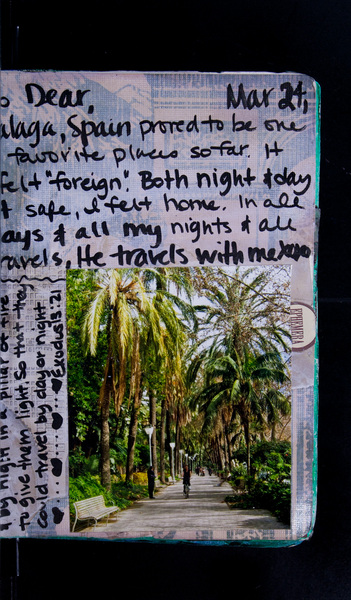 o Dear, Mar 24,
alaga, Spain proved to be one
favorite places so far. It
felt "foreign". Both night & day
t safe, I felt home. In all
ays & all my nights & all
ravels, He travels with me xoxo
t by night in a pillar of fire
to give them light so that they
could travel by day or night
Exodus 13:21
EPHEMERA